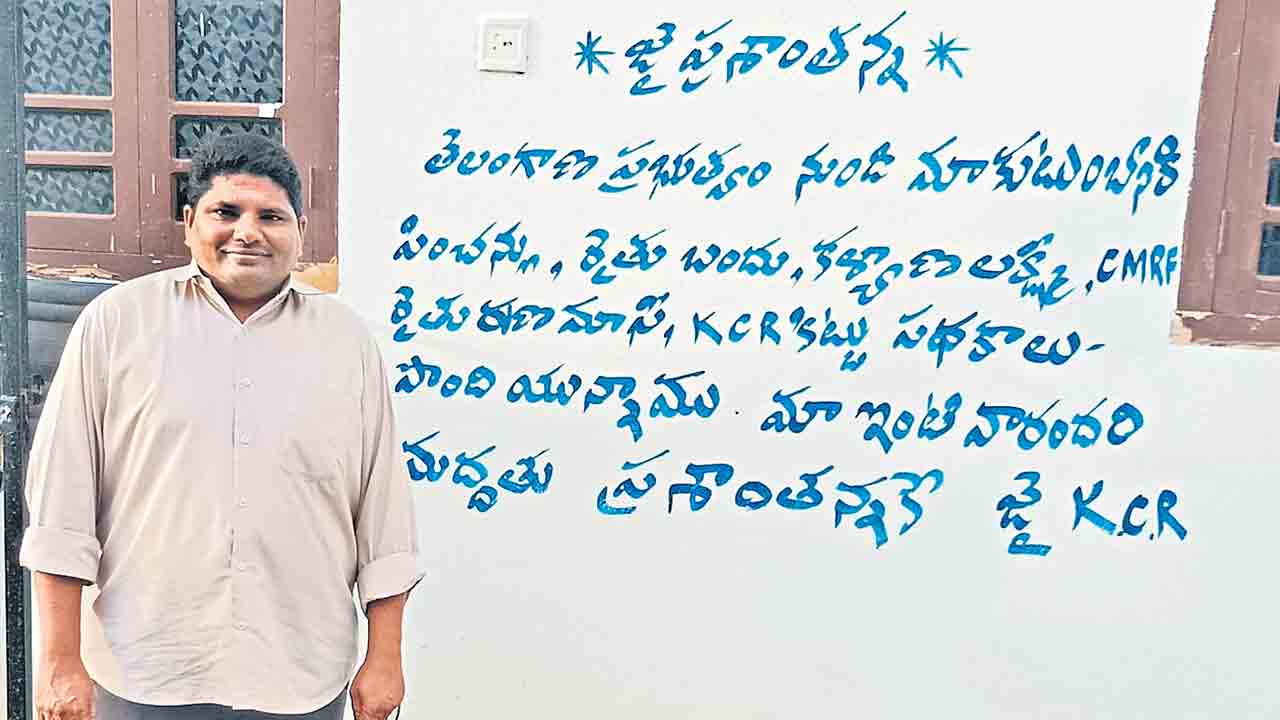 * జై ప్రశాంతన్న *
తెలంగాణ ప్రభుత్వం నుండి మా కుటుంబానికి
పించన్లు, రైతు బందు, కళ్యాణ లక్ష్మి, CMRF
రైతు ఋణ మాఫి, KCR కిట్టు పథకాలు -
పొంది యున్నాము. మా ఇంటి వారందరి
మద్దతు ప్రశాంతన్నకే జై K.C.R